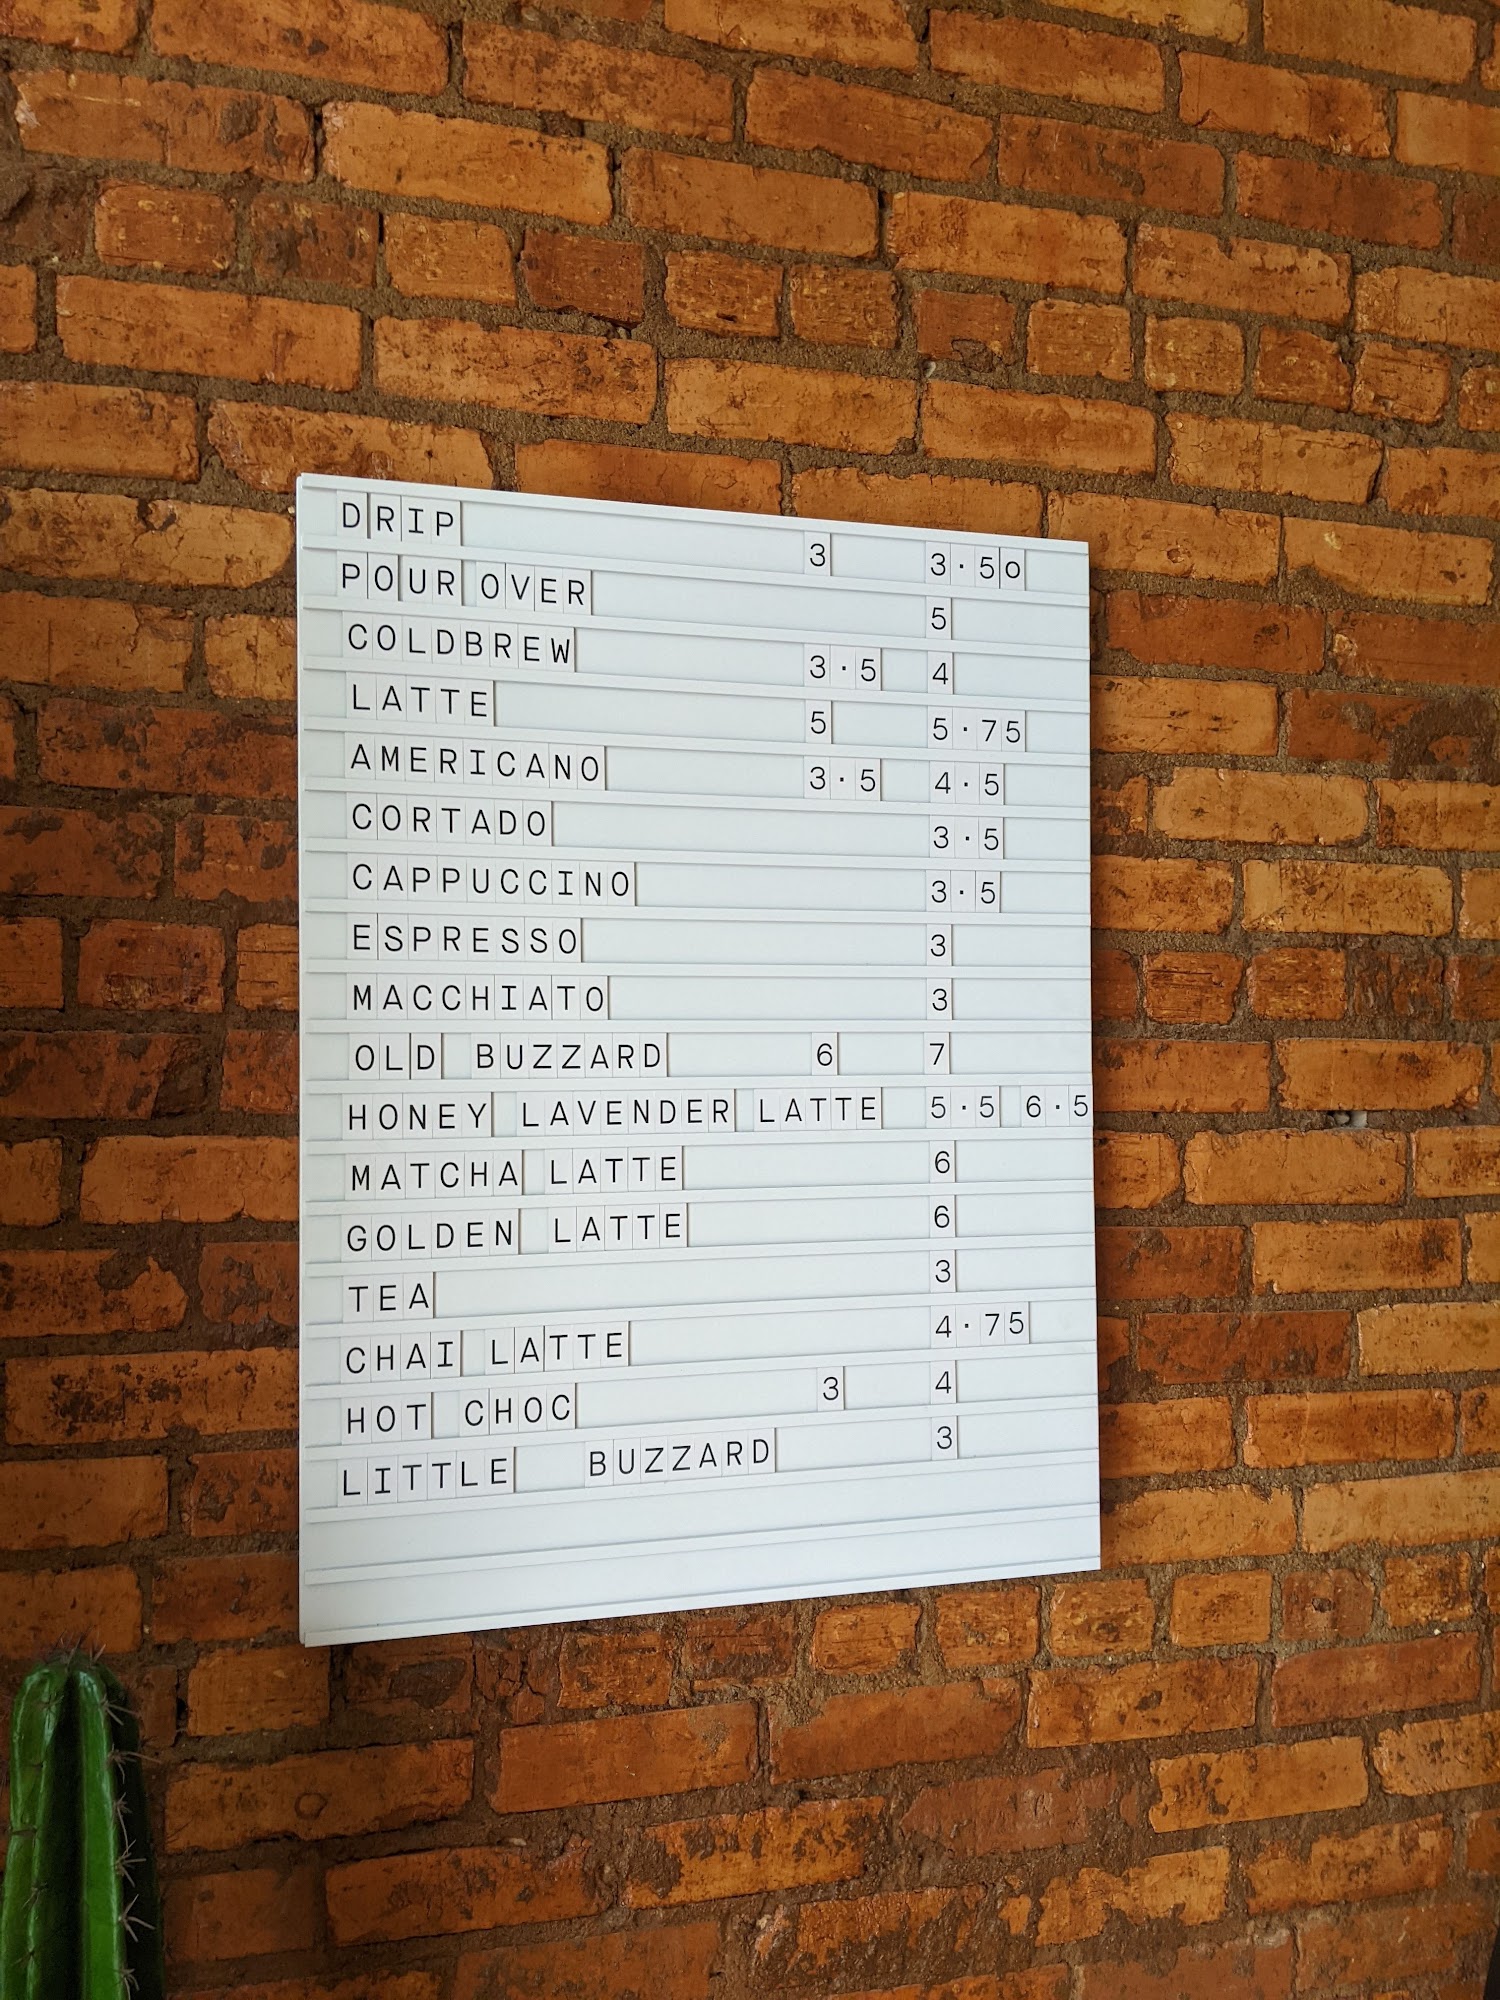 DRIP 3 3·50
POUR OVER 5
COLDBREW 3·5 4
LATTE 5 5·75
AMERICANO 3·5 4·5
CORTADO 3·5
CAPPUCCINO 3·5
ESPRESSO 3
MACCHIATO 3
OLD BUZZARD 6 7
HONEY LAVENDER LATTE 5·5 6·5
MATCHA LATTE 6
GOLDEN LATTE 6
TEA 3
CHAI LATTE 4·75
HOT CHOC 3 4
LITTLE BUZZARD 3